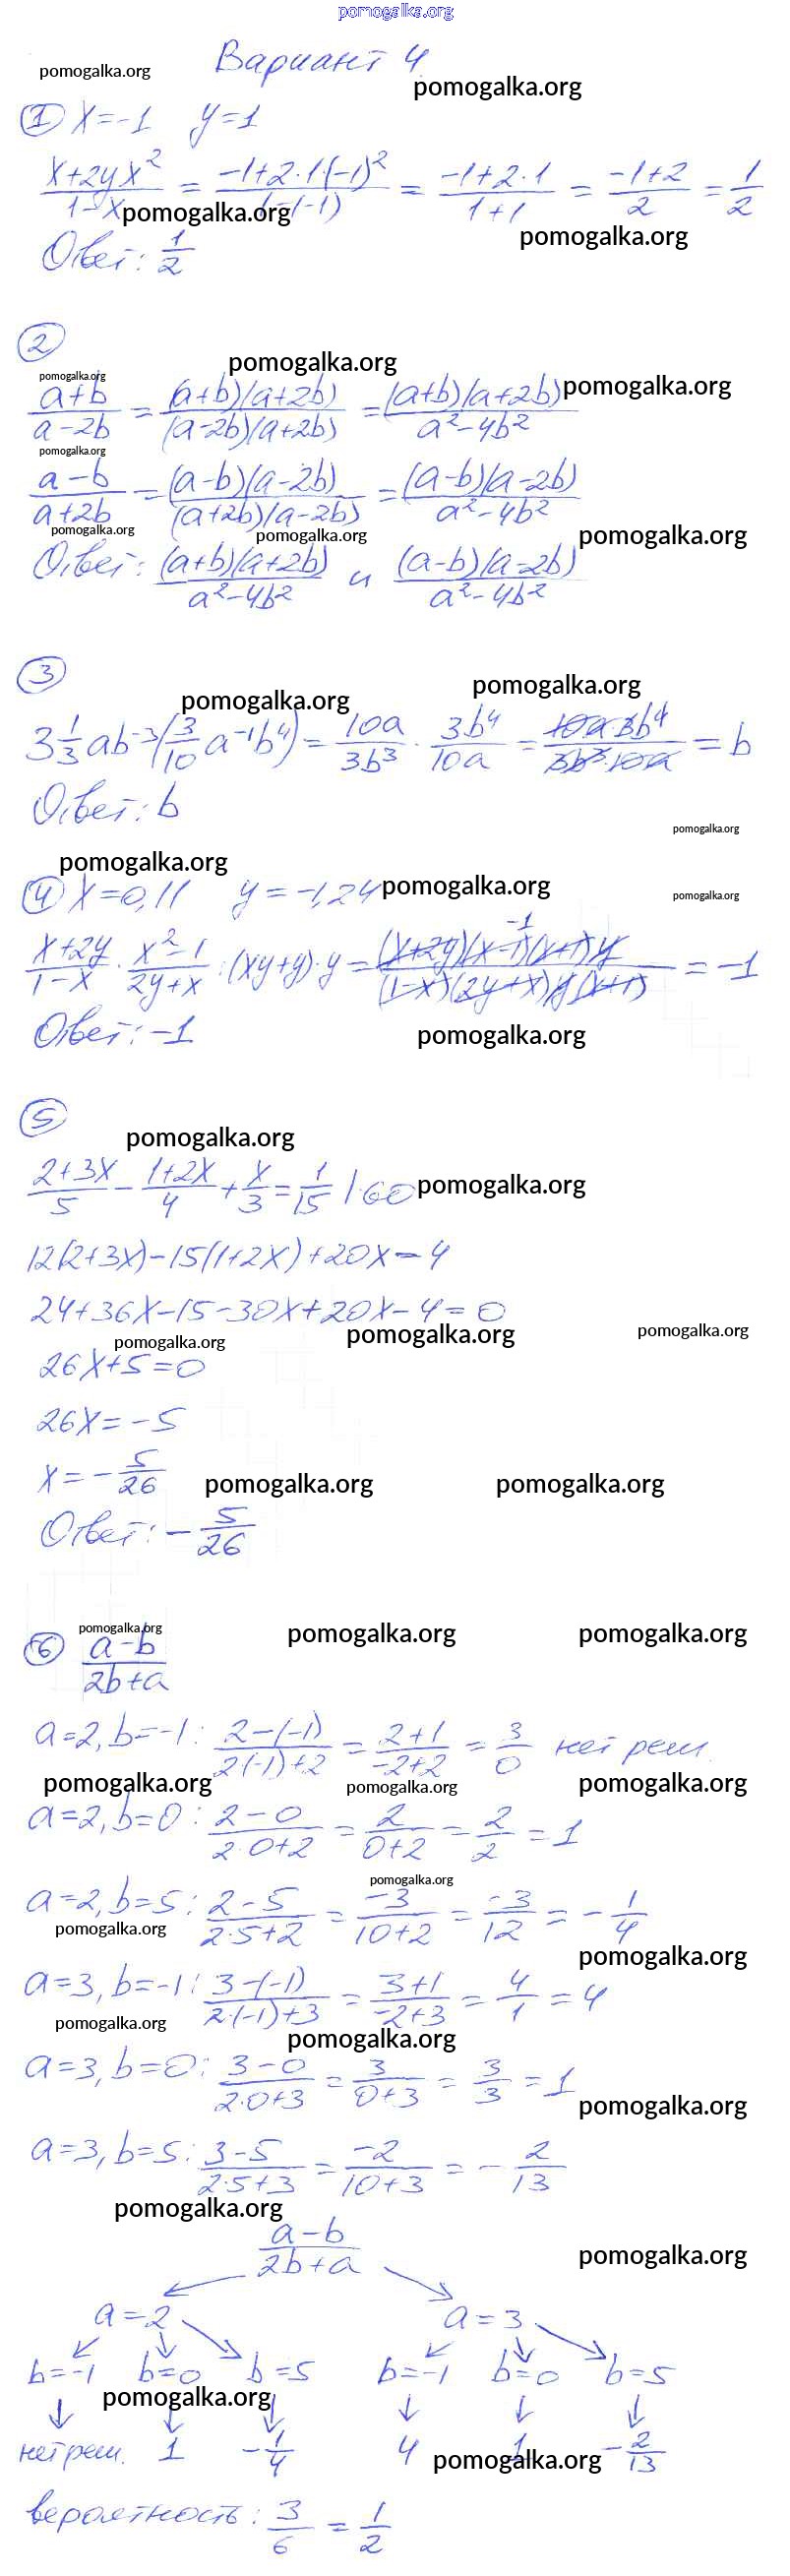 pomogalka.org
Вариант 4
pomogalka.org pomogalka.org
① x=-1 y=1
(x+2yx²)/(1-x) = (-1+2·1·(-1)²)/(1-(-1)) = (-1+2·1)/(1+1) = (-1+2)/2 = 1/2
pomogalka.org pomogalka.org
Ответ: 1/2
②
pomogalka.org
pomogalka.org pomogalka.org
(a+b)/(a-2b) = ((a+b)(a+2b))/((a-2b)(a+2b)) = ((a+b)(a+2b))/(a²-4b²)
pomogalka.org
(a-b)/(a+2b) = ((a-b)(a-2b))/((a+2b)(a-2b)) = ((a-b)(a-2b))/(a²-4b²)
pomogalka.org pomogalka.org pomogalka.org
Ответ: ((a+b)(a+2b))/(a²-4b²) и ((a-b)(a-2b))/(a²-4b²)
③
pomogalka.org pomogalka.org
3 1/3 ab⁻³(3/10 a⁻¹b⁴) = 10a/3b³ · 3b⁴/10a = (10a·3b⁴)/(3b³·10a) = b
Ответ: b
pomogalka.org
pomogalka.org
④ x=0,11 y=-1,24
pomogalka.org pomogalka.org
(x+2y)/(1-x) · (x²-1)/(2y+x) : (xy+y)·y = ((x+2y)(x-1)(x+1)y)/((1-x)(2y+x)y(x+1)) = -1
-1
Ответ: -1
pomogalka.org
⑤
pomogalka.org
(2+3x)/5 - (1+2x)/4 + x/3 = 1/15 |·60
pomogalka.org
12(2+3x)-15(1+2x)+20x=4
24+36x-15-30x+20x-4=0
pomogalka.org pomogalka.org pomogalka.org
26x+5=0
26x=-5
x=-5/26
pomogalka.org pomogalka.org
Ответ: -5/26
pomogalka.org pomogalka.org pomogalka.org
⑥ (a-b)/(2b+a)
a=2, b=-1: (2-(-1))/(2(-1)+2) = (2+1)/(-2+2) = 3/0 нет реш.
pomogalka.org pomogalka.org pomogalka.org
a=2, b=0: (2-0)/(2·0+2) = 2/(0+2) = 2/2 = 1
pomogalka.org
a=2, b=5: (2-5)/(2·5+2) = -3/(10+2) = -3/12 = -1/4
pomogalka.org pomogalka.org
a=3, b=-1: (3-(-1))/(2·(-1)+3) = (3+1)/(-2+3) = 4/1 = 4
pomogalka.org pomogalka.org
a=3, b=0: (3-0)/(2·0+3) = 3/(0+3) = 3/3 = 1
pomogalka.org
a=3, b=5: (3-5)/(2·5+3) = -2/(10+3) = -2/13
pomogalka.org
(a-b)/(2b+a)
pomogalka.org
a=2 a=3
b=-1 b=0 b=5 b=-1 b=0 b=5
pomogalka.org
нет реш. 1 -1/4 4 1 -2/13
pomogalka.org
вероятность: 3/6 = 1/2